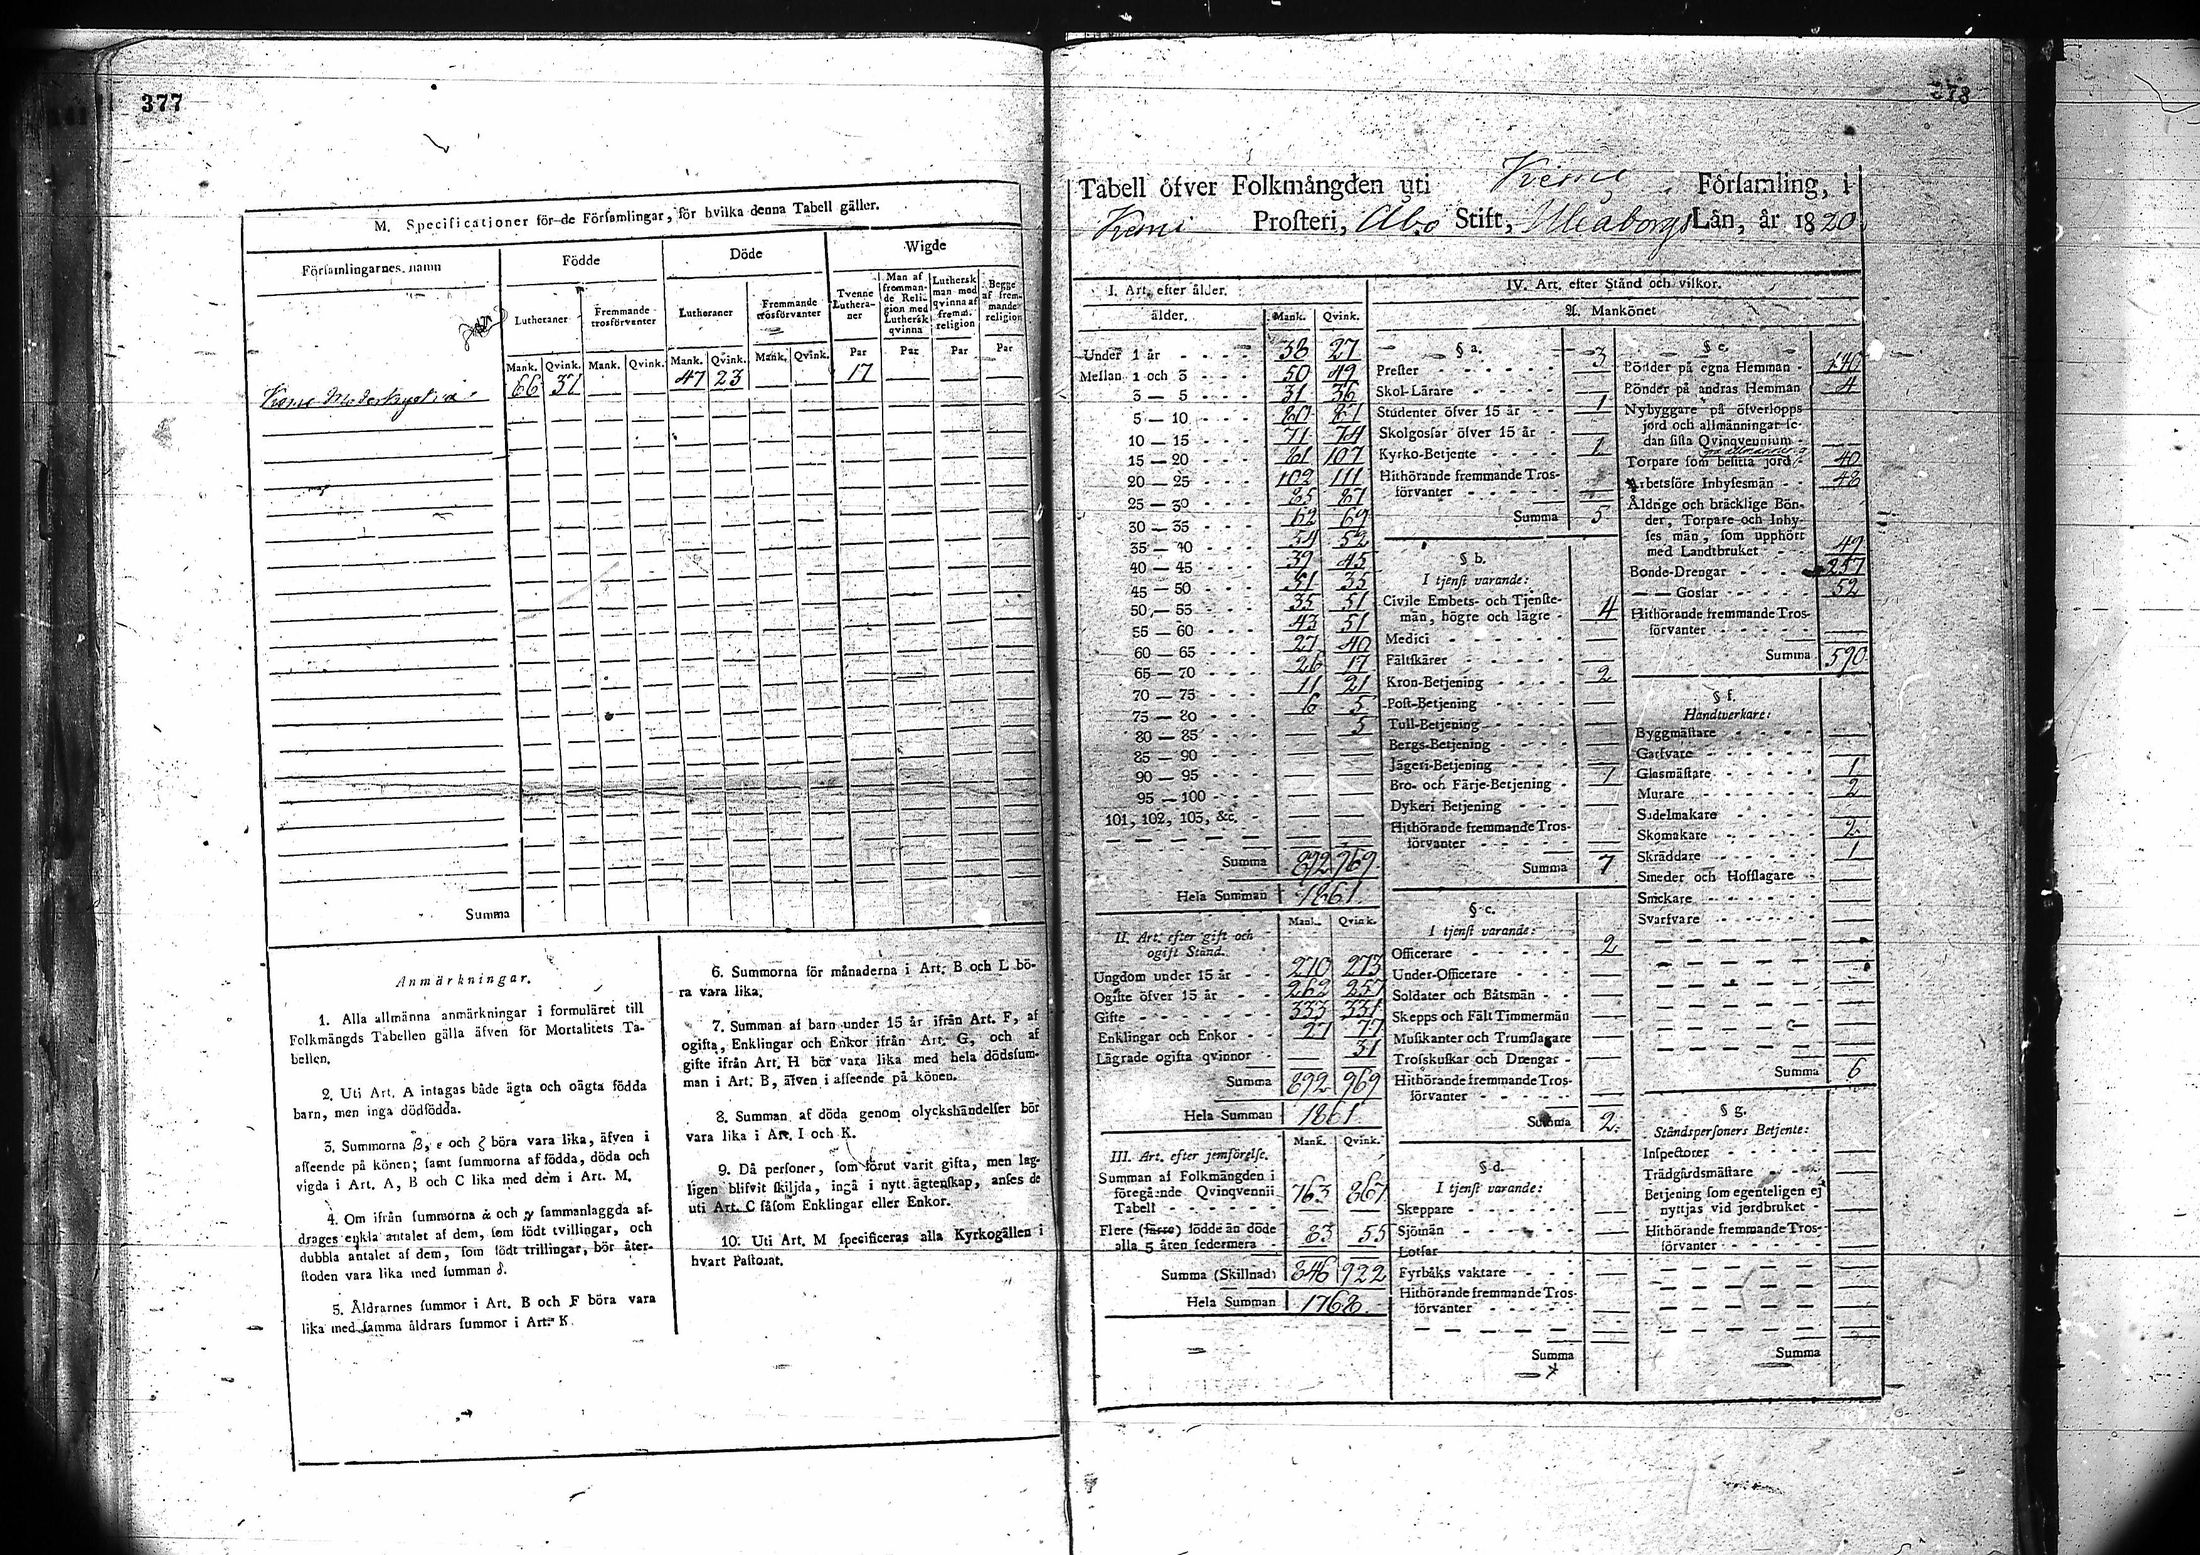 377
M. Specificationer för de Församlingar, för hvilka denna Tabell gäller.
Församlingarnes namn
Födde
Döde
Wigde
Lutheraner
Fremmande trosförvanter
Lutheraner
Fremmande trosförvanter
Tvenne Lutheraner
Man af frommande Religion med Luthersk qvinna
Luthersk man med qvinna af fremm. religion
Begge af fremmande religion
Mank. Qvink. Mank. Qvink. Mank. Qvink. Mank. Qvink. Par Par Par Par
Kemi Moderkyrka 66 37 47 23 17
Summa
Anmärkningar.
1. Alla allmänna anmärkningar i formuläret till
Folkmängds Tabellen gälla äfven för Mortalitets Ta-
bellen.
2. Uti Art. A intagas både ägta och oägta födda
barn, men inga dödfödda.
3. Summorna β, ε och ζ böra vara lika, äfven i
afseende på könen; samt summorna af födda, döda och
vigda i Art. A, B och C lika med dem i Art. M.
4. Om ifrån summorna α och γ sammanlaggda af-
drages enkla antalet af dem, som födt tvillingar, och
dubbla antalet af dem, som födt trillingar, bör åter-
stoden vara lika med summan δ.
5. Åldrarnes summor i Art. B och F böra vara
lika med samma åldrars summor i Art. K.
6. Summorna för månaderna i Art. B och L bö-
ra vara lika.
7. Summan af barn under 15 år ifrån Art. F, af
ogifta, Enklingar och Enkor ifrån Art. G, och af
gifte ifrån Art. H bör vara lika med hela dödssum-
man i Art. B, äfven i afseende på könen.
8. Summan af döda genom olyckshändelser bör
vara lika i Art. I och K.
9. Då personer, som förut varit gifta, men lag-
ligen blifvit skiljda, ingå i nytt ägtenskap, anses de
uti Art. C såsom Enklingar eller Enkor.
10. Uti Art. M specificeras alla Kyrkogällen i
hvart Pastorat.
378
Tabell öfver Folkmängden uti Kemi Församling, i
Kemi Prosteri, Åbo Stift, Uleåborgs Län, år 1820
I. Art. efter ålder.
ålder. Mank. Qvink.
Under 1 år 38 27
Mellan 1 och 3 50 49
3 — 5 31 36
5 — 10 80 87
10 — 15 71 74
15 — 20 81 107
20 — 25 102 111
25 — 30 85 87
30 — 35 62 69
35 — 40 54 52
40 — 45 39 45
45 — 50 51 35
50 — 55 35 51
55 — 60 43 51
60 — 65 27 40
65 — 70 26 17
70 — 75 11 21
75 — 80 6 5
80 — 85 5
85 — 90
90 — 95
95 — 100
101, 102, 103, &c.
Summa 892 969
Hela Summan 1861
Mank. Qvink.
II. Art. efter gift och
ogift Stånd.
Ungdom under 15 år 270 273
Ogifte öfver 15 år 262 257
Gifte 333 331
Enklingar och Enkor 27 77
Lägrade ogifta qvinnor 31
Summa 892 969
Hela Summan 1861
Mank. Qvink.
III. Art. efter jemförelse.
Summan af Folkmängden i
föregående Qvinqvennii
Tabell 763 867
Flere (färre) födde än döde
alla 5 åren sedermera 83 55
Summa (Skillnad) 846 922
Hela Summan 1768
IV. Art. efter Stånd och vilkor.
A. Mankönet
§ a.
Prester 3
Skol-Lärare
Studenter öfver 15 år 1
Skolgossar öfver 15 år
Kyrko-Betjente 1
Hithörande fremmande Tros-
förvanter
Summa 5
§ b.
I tjenst varande:
Civile Embets- och Tjenste-
män, högre och lägre 4
Medici
Fältskärer
Kron-Betjening 2
Post-Betjening
Tull-Betjening
Bergs-Betjening
Jägeri-Betjening
Bro- och Färje-Betjening 1
Dykeri Betjening
Hithörande fremmande Tros-
förvanter
Summa 7
§ c.
I tjenst varande:
Officerare 2
Under-Officerare
Soldater och Båtsmän
Skepps och Fält Timmermän
Musikanter och Trumslagare
Trosskuskar och Drengar
Hithörande fremmande Tros-
förvanter
Summa 2
§ d.
I tjenst varande:
Skeppare
Sjömän
Lotsar
Fyrbåks vaktare
Hithörande fremmande Tros-
förvanter
Summa
§ e.
Bönder på egna Hemman 140
Bönder på andras Hemman 4
Nybyggare på öfverlopps
jord och allmänningar se-
dan sista Qvinqvennium
Torpare som besitta jord 40
Arbetsföre Inhysesmän 48
Åldrige och bräcklige Bön-
der, Torpare och Inhy-
ses män, som upphört
med Landtbruket 49
Bonde-Drengar 257
— — Gossar 52
Hithörande fremmande Tros-
förvanter
Summa 590
§ f.
Handtverkare:
Byggmästare
Garfvare
Glasmästare 1
Murare 2
Sadelmakare
Skomakare 2
Skräddare 1
Smeder och Hofslagare
Snickare
Svarfvare
Summa 6
§ g.
Ståndspersoners Betjente:
Inspectorer
Trädgårdsmästare
Betjening som egenteligen ej
nyttjas vid jordbruket
Hithörande fremmande Tros-
förvanter
Summa